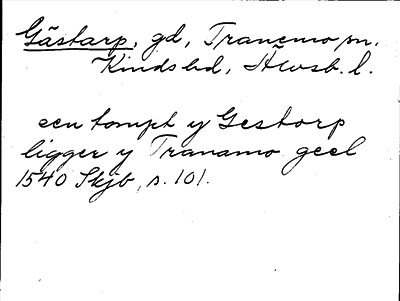 Gästarp, gd, Tranemo sn.
Kinds hd, Älvsb. l.
een tompt y Gestorp
ligger y Tranamo geel
1540 Skjb, s. 101.